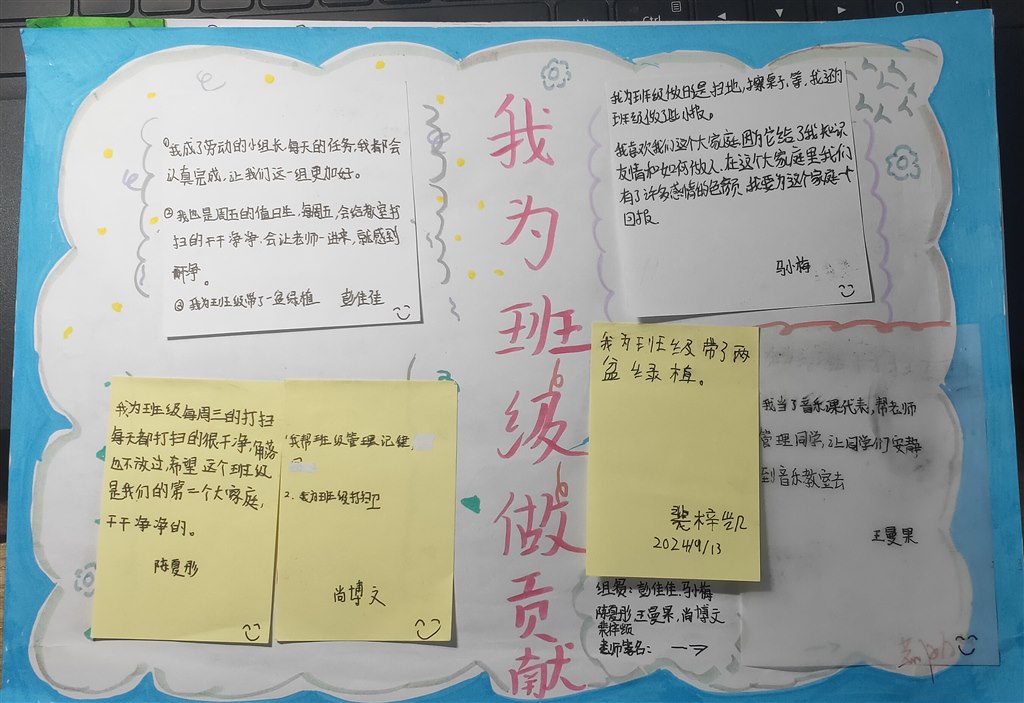 我为班级做贡献
①我成了劳动的小组长,每天的任务,我都会
认真完成,让我们这一组更加好。
②我也是周五的值日生,每周五,会给教室打
扫的干干净净.会让老师一进来,就感到
干净。
③我为班级带了一盆绿植 彭佳佳
我为班级做的是扫地,擦桌子等,我还为
班级做了此小报。
我喜欢我们这个大家庭因为它给了我知识
友情和如何做人.在这个大家庭里我们
有了许多感情的色彩.我要为这个家庭个
回报
马小梅
我为班级每周三的打扫
每天都打扫的很干净,角落
也不放过,希望这个班级
是我们的第二个大家庭,
干干净净的。
陈夏彤
1我帮班级管理
2.我为班级打扫卫
尚博文
我为班级带了两
盆绿植。
裴梓凯
2024/9/13
我当了音乐课代表,帮老师
管理同学,让同学们安静
到音乐教室去
王曼果
组员:彭佳佳.马小梅
陈夏彤王曼果,尚博文
老师签名: